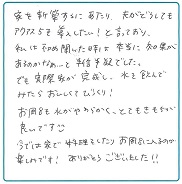 家を新築するにあたり、夫がどうしても
アクアスを導入したい！と言っており、
私は初め聞いた時は本当に効果が
あるのかなぁ…と半信半疑でした。
でも実際家が完成し、水を飲んで
みたらおいしくてびっくり！
お風呂も水がやわらかく、とてもきもちが
良いです
今では家で料理をしたりお風呂に入るのが
楽しみです！ありがとうございました!!